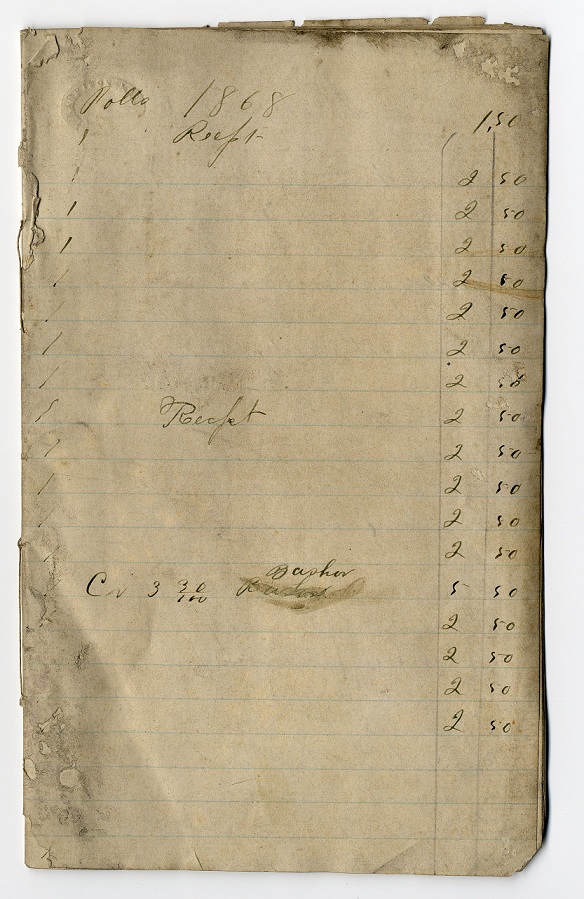 Polls 1868
1 Recpt 1,50
1 2 50
1 2 50
1 2 50
1 2 50
1 2 50
1 2 50
1 2 50
1 Recpt 2 50
1 2 50
1 2 50
1 2 50
1 2 50
Bashor
Cr 3 30/100 5 50
2 50
2 50
2 50
2 50